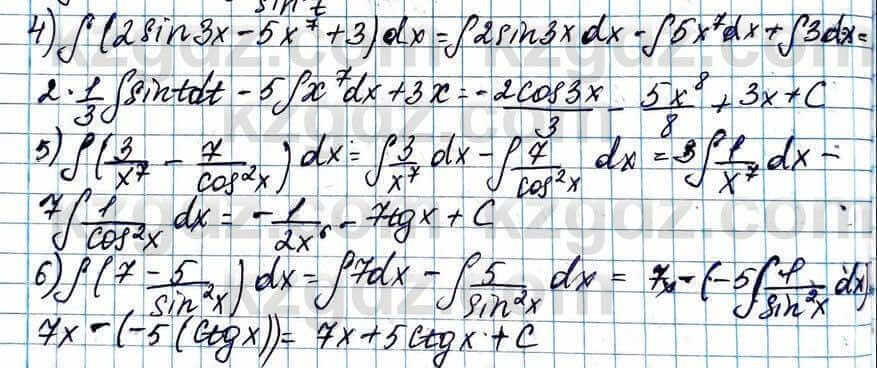 sin²t
4) ∫(2sin3x - 5x⁷ + 3)dx = ∫2sin3x dx - ∫5x⁷dx + ∫3dx =
2 · 1/3 ∫sintdt - 5∫x⁷dx + 3x = - 2cos3x/3 - 5x⁸/8 + 3x + C
5) ∫(3/x⁷ - 7/cos²x) dx = ∫3/x⁷ dx - ∫7/cos²x dx = 3∫1/x⁷ dx -
7∫1/cos²x dx = - 1/2x⁶ - 7tgx + C
6) ∫(7 - 5/sin²x) dx = ∫7dx - ∫5/sin²x dx = 7x - (-5∫1/sin²x dx)
7x - (-5(ctgx)) = 7x + 5ctgx + C
kzgdz.com